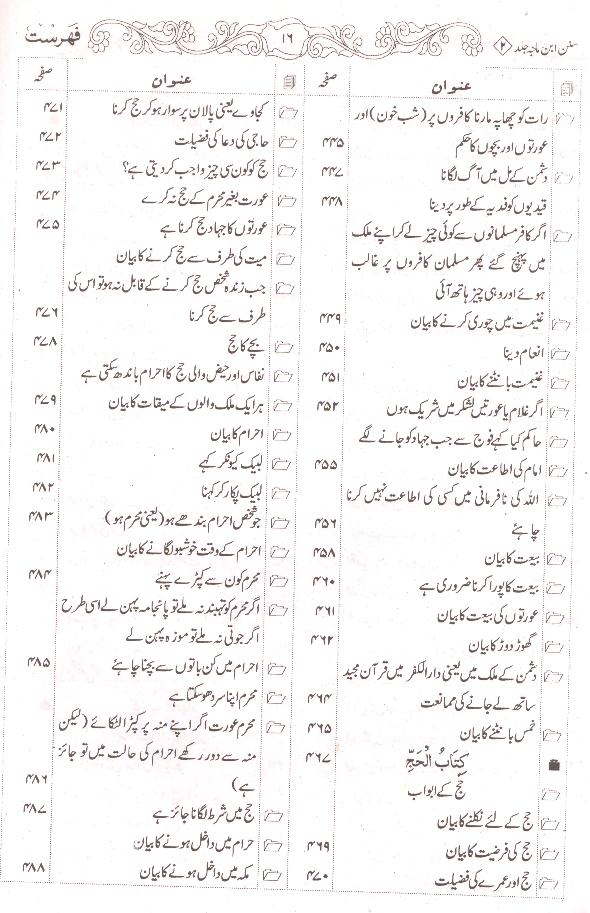 سنن ابن ماجہ جلد ۲
۱۶
فہرست
عنوان صفحہ
رات کو چھاپہ مارنا کافروں پر (شب خون) اور
عورتوں اور بچوں کا حکم ۴۴۵
دشمن کے مل میں آگ لگانا ۴۴۷
قیدیوں کو فدیہ کے طور پر دینا ۴۴۸
اگر کافر مسلمانوں سے کوئی چیز لے کر اپنے ملک
میں پہنچ گئے پھر مسلمان کافروں پر غالب
ہوئے اور وہی چیز ہاتھ آئی
غنیمت میں چوری کرنے کا بیان ۴۴۹
انعام دینا ۴۵۰
غنیمت بانٹنے کا بیان ۴۵۱
اگر غلام یا عورتیں لشکر میں شریک ہوں ۴۵۲
حاکم کیا کہے فوج سے جب جہاد کو جانے لگے
امام کی اطاعت کا بیان ۴۵۵
اللہ کی نافرمانی میں کسی کی اطاعت نہیں کرنا
چاہئے ۴۵۶
بیعت کا بیان ۴۵۸
بیعت کا پورا کرنا ضروری ہے ۴۶۰
عورتوں کی بیعت کا بیان ۴۶۱
گھوڑ دوڑ کا بیان ۴۶۲
دشمن کے ملک میں یعنی دارالکفر میں قرآن مجید
ساتھ لے جانے کی ممانعت ۴۶۴
خمس بانٹنے کا بیان ۴۶۵
کِتَابُ الْحَجِّ ۴۶۷
حج کے ابواب
حج کے لئے نکلنے کا بیان
حج کی فرضیت کا بیان ۴۶۹
حج اور عمرے کی فضیلت ۴۷۰
عنوان صفحہ
کجاوے یعنی پالان پر سوار ہو کر حج کرنا ۴۷۱
حاجی کی دعا کی فضیلت ۴۷۲
حج کو کون سی چیز واجب کر دیتی ہے؟ ۴۷۳
عورت بغیر محرم کے حج نہ کرے ۴۷۴
عورتوں کا جہاد حج کرنا ہے ۴۷۵
میت کی طرف سے حج کرنے کا بیان
جب زندہ شخص حج کرنے کے قابل نہ ہو تو اس کی
طرف سے حج کرنا ۴۷۶
بچے کا حج ۴۷۸
نفاس اور حیض والی حج کا احرام باندھ سکتی ہے
ہر ایک ملک والوں کے میقات کا بیان ۴۷۹
احرام کا بیان ۴۸۰
لبیک کیونکر کہے ۴۸۱
لبیک پکار کر کہنا ۴۸۲
جو شخص احرام باندھے ہو (یعنی محرم ہو) ۴۸۳
احرام کے وقت خوشبو لگانے کا بیان
محرم کون سے کپڑے پہنے ۴۸۴
اگر محرم کو تہبند نہ ملے تو پائجامہ پہن لے اسی طرح
اگر جوتی نہ ملے تو موزہ پہن لے
احرام میں کن باتوں سے بچنا چاہئے ۴۸۵
محرم اپنا سر دھو سکتا ہے
محرم عورت اگر اپنے منہ پر کپڑا لٹکائے (لیکن
منہ سے دور رکھے احرام کی حالت میں تو جائز
ہے) ۴۸۶
حج میں شرط لگانا جائز ہے ۴۸۷
حرام میں داخل ہونے کا بیان
مکہ میں داخل ہونے کا بیان ۴۸۸